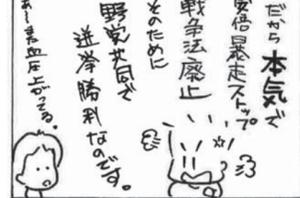 だから本気で
安倍暴走ストップ
戦争法廃止
そのために
野党共同で
選挙勝利なのです。
あ〜また血圧上がってる。